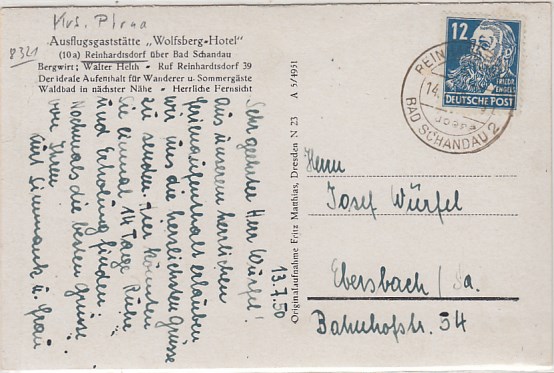 Krs. Pirna
8321
Ausflugsgaststätte „Wolfsberg-Hotel"
(10a) Reinhardtsdorf über Bad Schandau
Bergwirt: Walter Helth · Ruf Reinhardtsdorf 39
Der ideale Aufenthalt für Wanderer u. Sommergäste
Waldbad in nächster Nähe · Herrliche Fernsicht
13.7.50
Sehr geehrter Herr Würfel!
Aus unserem herrlichen
Ferienaufenthalt erlauben
wir uns die herzlichsten Grüsse
zu senden. Hier könnten
Sie einmal 14 Tage Ruhe
und Erholung finden.
Nochmals die besten Grüsse
von Ihren
Kurt u. Frau
Originalaufnahme Fritz Matthias, Dresden N 23 A 5/4951
12
FRIEDR.
ENGELS
DEUTSCHE POST
REIN
14.
BAD SCHANDAU 2
Herrn
Josef Würfel
Ebersbach / Sa.
Bahnhofstr. 54